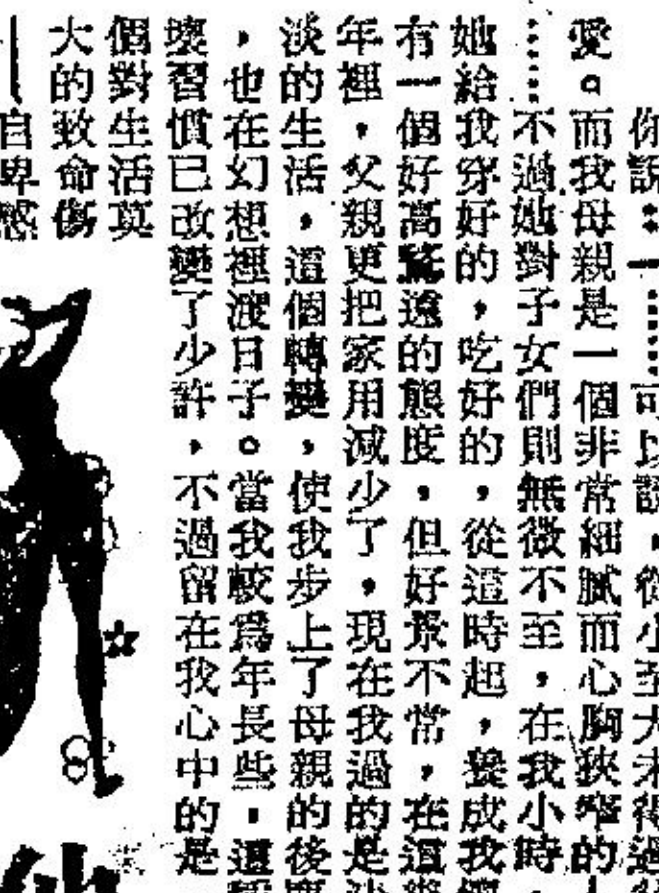 你說：一……可以說，從小至大未得過
愛。而我母親是一個非常細膩而心胸狹窄的
……不過她對子女們則無微不至，在我小時，
她給我穿好的，吃好的，從這時起，養成我
有一個好高騖遠的態度，但好景不常，在這幾
年裡，父親更把家用減少了，現在我過的是
淡的生活，這個轉變，使我步上了母親的後
，也在幻想裡渡日子。當我較爲年長些，這
壞習慣已改變了少許，不過留在我心中的是
個對生活莫
大的致命傷
——自卑感
他